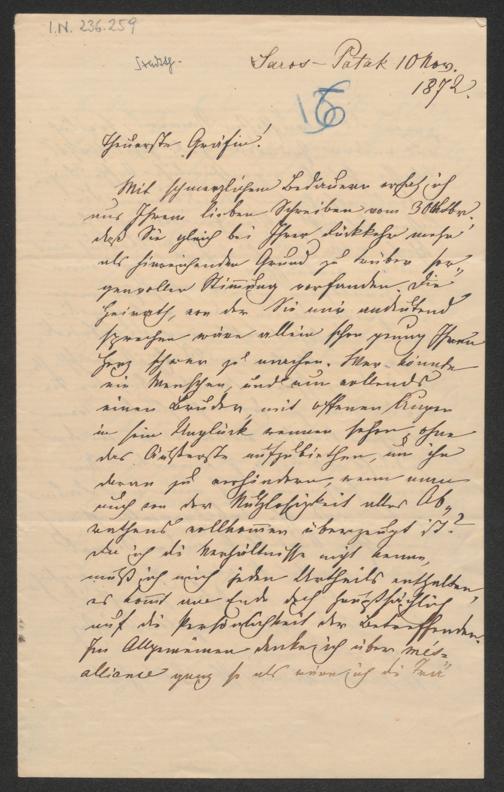 I.N. 236.259
Saros-Patak 10 Nov.
1872.
156
Theuerste Gräfin!
Mit schmerzlichem Bedauern ersah ich
aus Ihrem lieben Schreiben vom 3 Oktobr.
daß Sie gleich bei Ihrer Rückkehr mehr
als hinreichenden Grund zu trüber sor¬
genvoller Stimmung vorfanden. Die
Heirath, von der Sie mir andeutend
sprechen wäre allein schon genug Ihnen
Herz schwer zu machen. Wer könnte
ein Menschen, und nun vollends
einen Bruder, mit offenen Augen
in sein Unglück rennen sehen, ohne
das Äußerste aufzubiethen, um ihn
daran zu verhindern, wenn man
auch von der Nutzlosigkeit alles Ab¬
rathens vollkommen überzeugt ist?
Da ich die Verhältnisse nicht kenne,
muß ich mich jeden Urtheils enthalten,
es kommt am Ende doch hauptsächlich
auf die Persönlichkeit der Betreffenden.
Im Allgemeinen denke ich über més=
alliance ganz so als wäre ich die